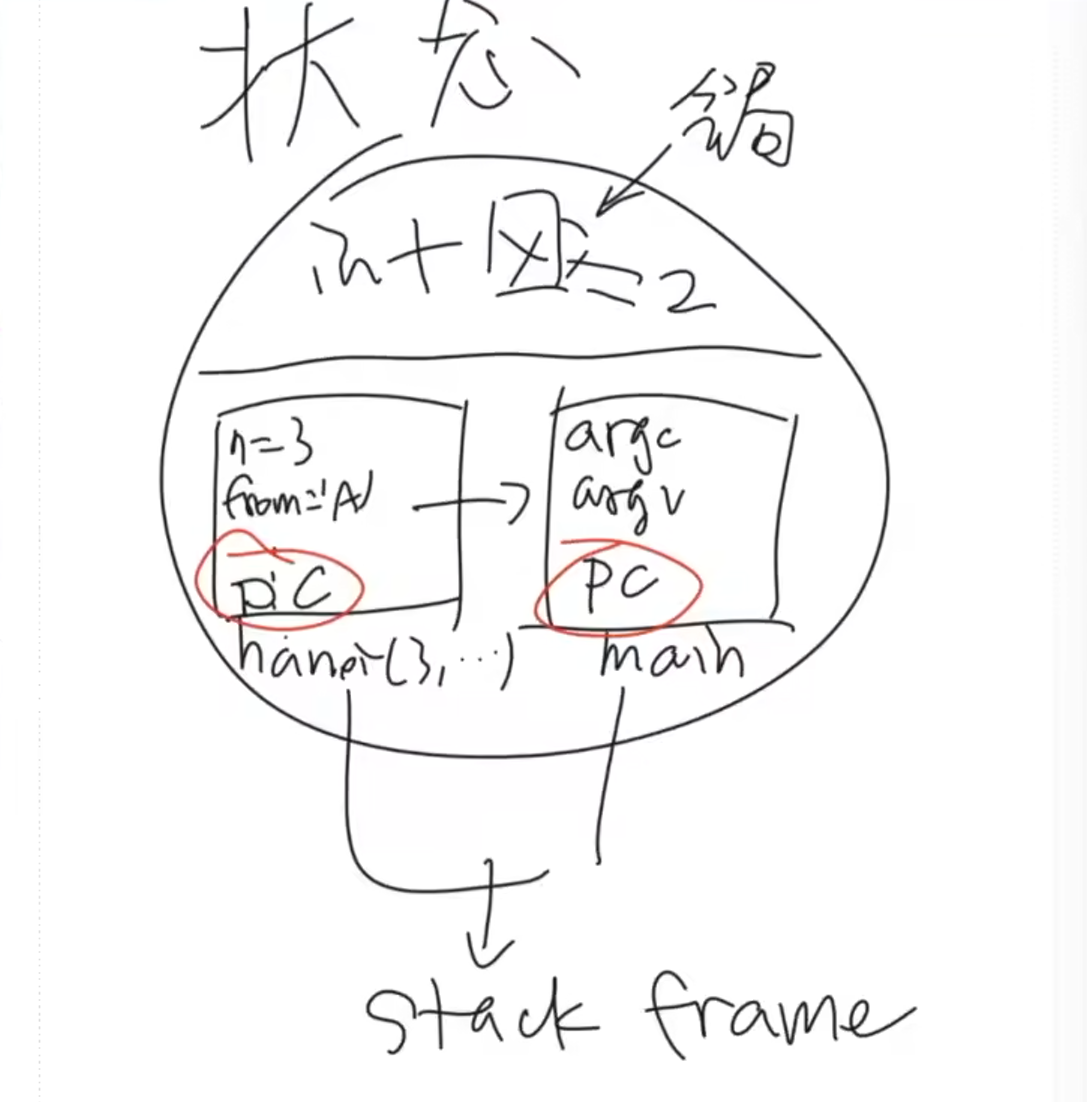 状态
编
int x = 2
n=3
from='A'
pc
hanoi(3,...)
argc
argv
PC
main
stack frame